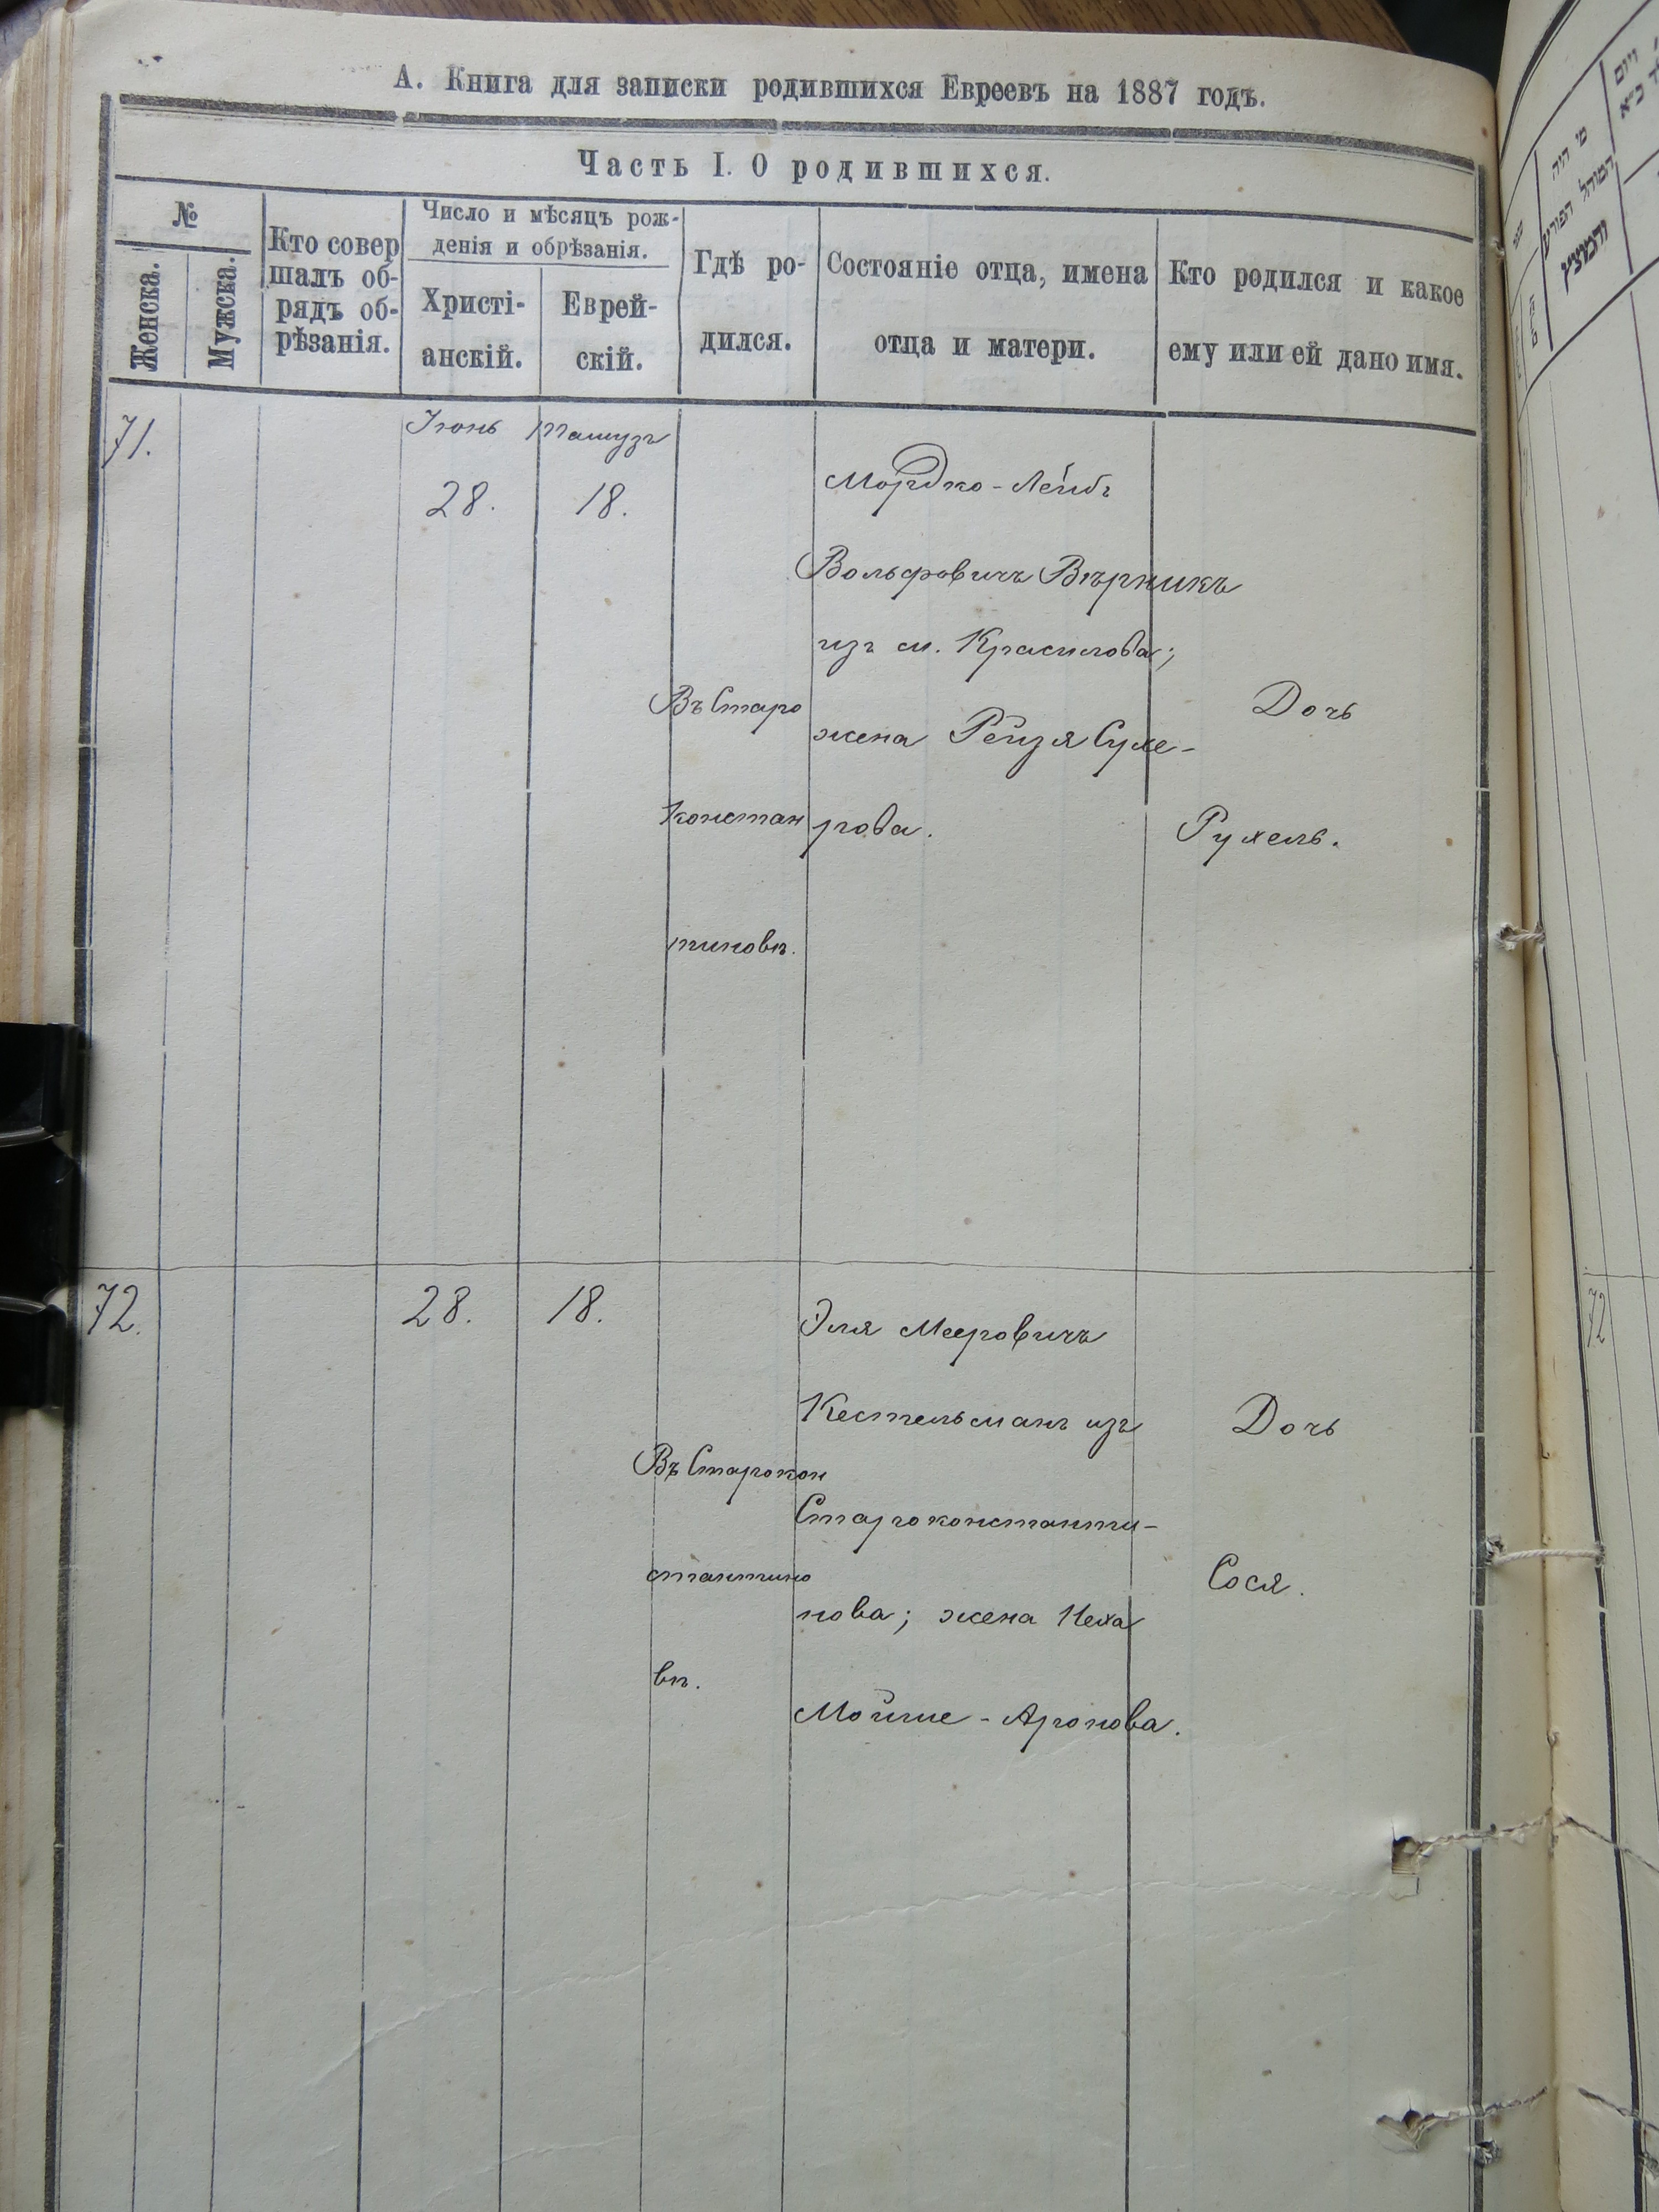 А. Книга для записки родившихся Евреевъ на 1887 годъ.
Часть I. О родившихся.
№
Женска.
Мужска.
Кто совер
шалъ об-
рядъ об-
рѣзанія.
Число и мѣсяцъ рож-
денія и обрѣзанія.
Христі-
анскій.
Еврей-
скій.
Гдѣ ро-
дился.
Состояніе отца, имена
отца и матери.
Кто родился и какое
ему или ей дано имя.
71.
Іюнь
28.
Тамузъ
18.
Въ Старо
констан
тиновѣ.
Мордко-Лейбъ
Вольфовичъ Вѣрникъ
из м. Красилова;
жена Рейзя Сухе-
рова.
Дочь
Рухель.
72.
28.
18.
Въ Старокон
стантино
вѣ.
Эля Мееровичъ
Кестельманъ изъ
Староконстанти-
нова; жена Неха
Мойше-Аронова.
Дочь
Сося.
מי היה
המוהל הפורע
והמוצץ
72